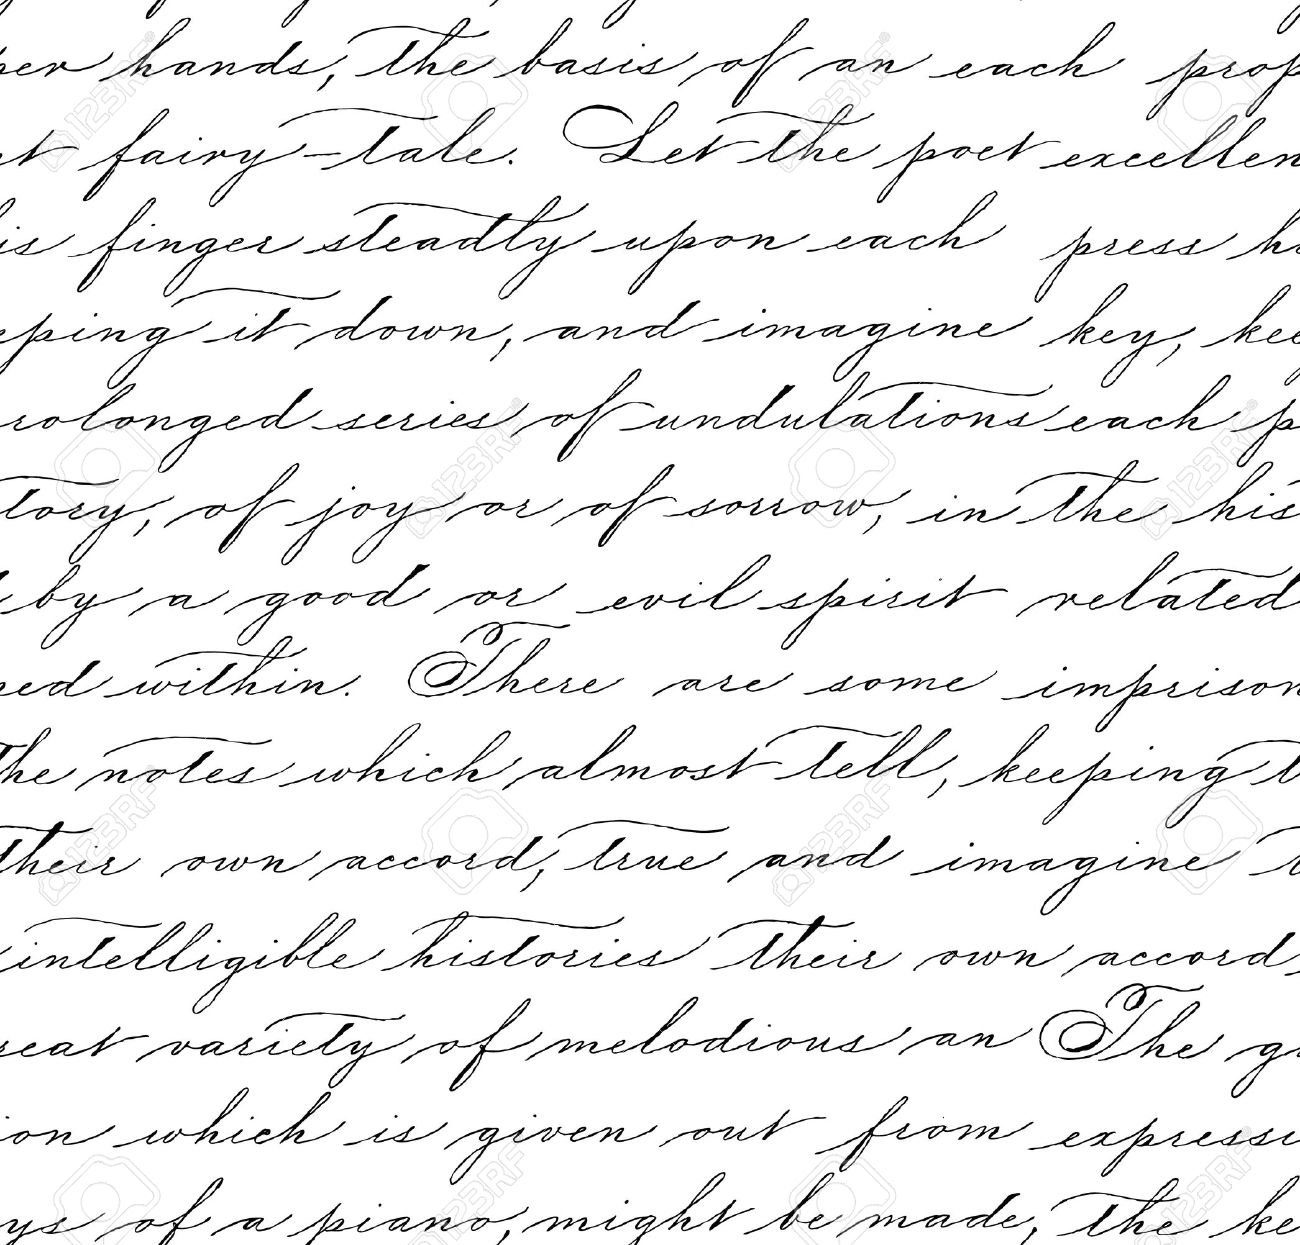 per hands, the basis of an each prop
nt fairy-tale. Let the poet excellen
is finger steadly upon each press hi
eping it down, and imagine key, kee
rolonged series of undulations each p
tory, of joy or of sorrow, in the his
d by a good or evil spirit related
ned within. There are some imprison
the notes which almost tell, keeping t
their own accord, true and imagine
intelligible histories their own accord,
reat variety of melodious an The gr
ion which is given out from expressi
ys of a piano, might be made, the ke